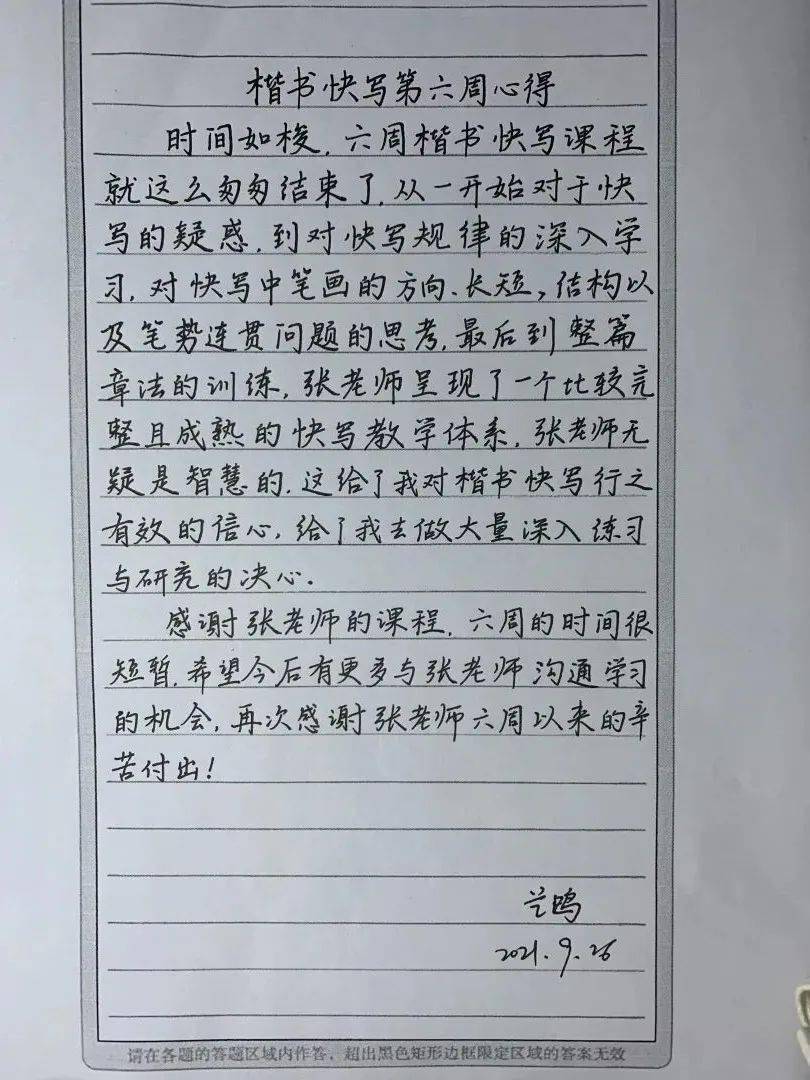 楷书快写第六周心得
时间如梭，六周楷书快写课程
就这么匆匆结束了，从一开始对于快
写的疑惑，到对快写规律的深入学
习，对快写中笔画的方向、长短，结构以
及笔势连贯问题的思考，最后到整篇
章法的训练，张老师呈现了一个比较完
整且成熟的快写教学体系，张老师无
疑是智慧的，这给了我对楷书快写行之
有效的信心，给了我去做大量深入练习
与研究的决心．
感谢张老师的课程，六周的时间很
短暂，希望今后有更多与张老师沟通学习
的机会，再次感谢张老师六周以来的辛
苦付出！
2021.9.26
请在各题的答题区域内作答，超出黑色矩形边框限定区域的答案无效